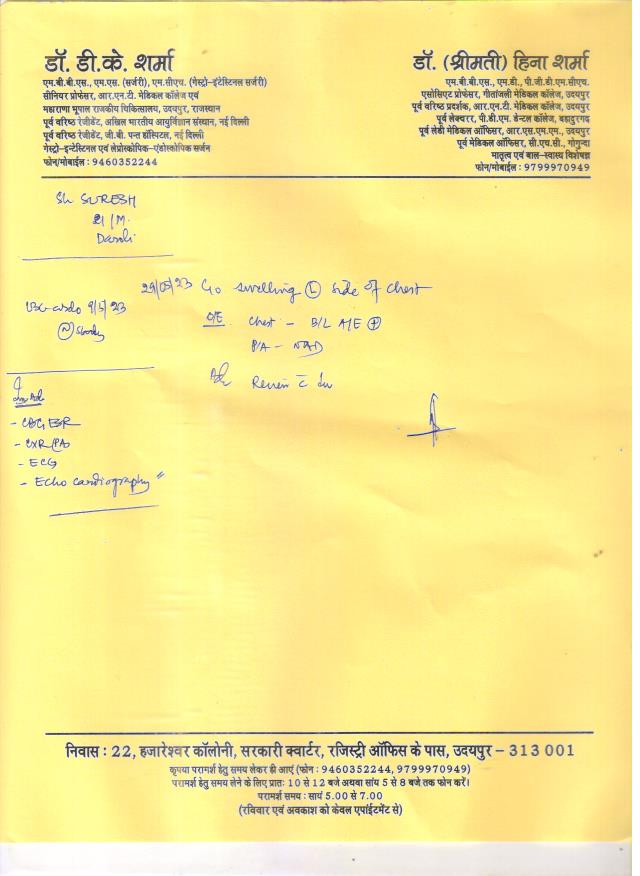 डॉ. डी.के. शर्मा
एम.बी.बी.एस., एम.एस. (सर्जरी), एम.सीएच. (गेस्ट्रो-इंटेस्टिनल सर्जरी)
सीनियर प्रोफेसर, आर.एन.टी. मेडिकल कॉलेज एवं
महाराणा भूपाल राजकीय चिकित्सालय, उदयपुर, राजस्थान
पूर्व वरिष्ठ रेजीडेंट, अखिल भारतीय आयुर्विज्ञान संस्थान, नई दिल्ली
पूर्व वरिष्ठ रेजीडेंट, जी.बी. पन्त हॉस्पिटल, नई दिल्ली
गेस्ट्रो-इन्टेस्टिनल एवं लेप्रोस्कोपिक-एंडोस्कोपिक सर्जन
फोन/मोबाईल : 9460352244
डॉ. (श्रीमती) हिना शर्मा
एम.बी.बी.एस., एम.डी., पी.जी.डी.एम.सीएच.
एसोसिएट प्रोफेसर, गीतांजली मेडिकल कॉलेज, उदयपुर
पूर्व वरिष्ठ प्रदर्शक, आर.एन.टी. मेडिकल कॉलेज, उदयपुर
पूर्व लेक्चरर, पी.डी.एम. डेन्टल कॉलेज, बहादुरगढ़
पूर्व लेडी मेडिकल ऑफिसर, आर.एस.एम.एम., उदयपुर
पूर्व मेडिकल ऑफिसर, सी.एच.सी., गोगुन्दा
मातृत्व एवं बाल-स्वास्थ्य विशेषज्ञ
फोन/मोबाईल : 9799970949
Sh SURESH
21/M.
Daroli
29/05/23 C/o swelling (L) side of chest
9/5/23
(N) Study
O/E Chest - B/L A/E (+)
P/A - NAD
Adv Review c̄ Inv
Inv Adv
- CBC, ESR
- CXR (PA)
- ECG
- Echo cardiography"
निवास : 22, हजारेश्वर कॉलोनी, सरकारी क्वार्टर, रजिस्ट्री ऑफिस के पास, उदयपुर - 313 001
कृपया परामर्श हेतु समय लेकर ही आएं (फोन : 9460352244, 9799970949)
परामर्श हेतु समय लेने के लिए प्रातः 10 से 12 बजे अथवा सांय 5 से 8 बजे तक फोन करें।
परामर्श समय : सायं 5.00 से 7.00
(रविवार एवं अवकाश को केवल एपांईटमेंट से)